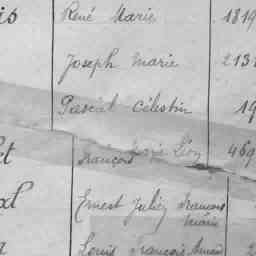 is René Marie 1319
Joseph Marie 2131
Pascal Célestin 19
et François Marie Léon 469
Ernest Julien François
Marie
Louis François Armand 2